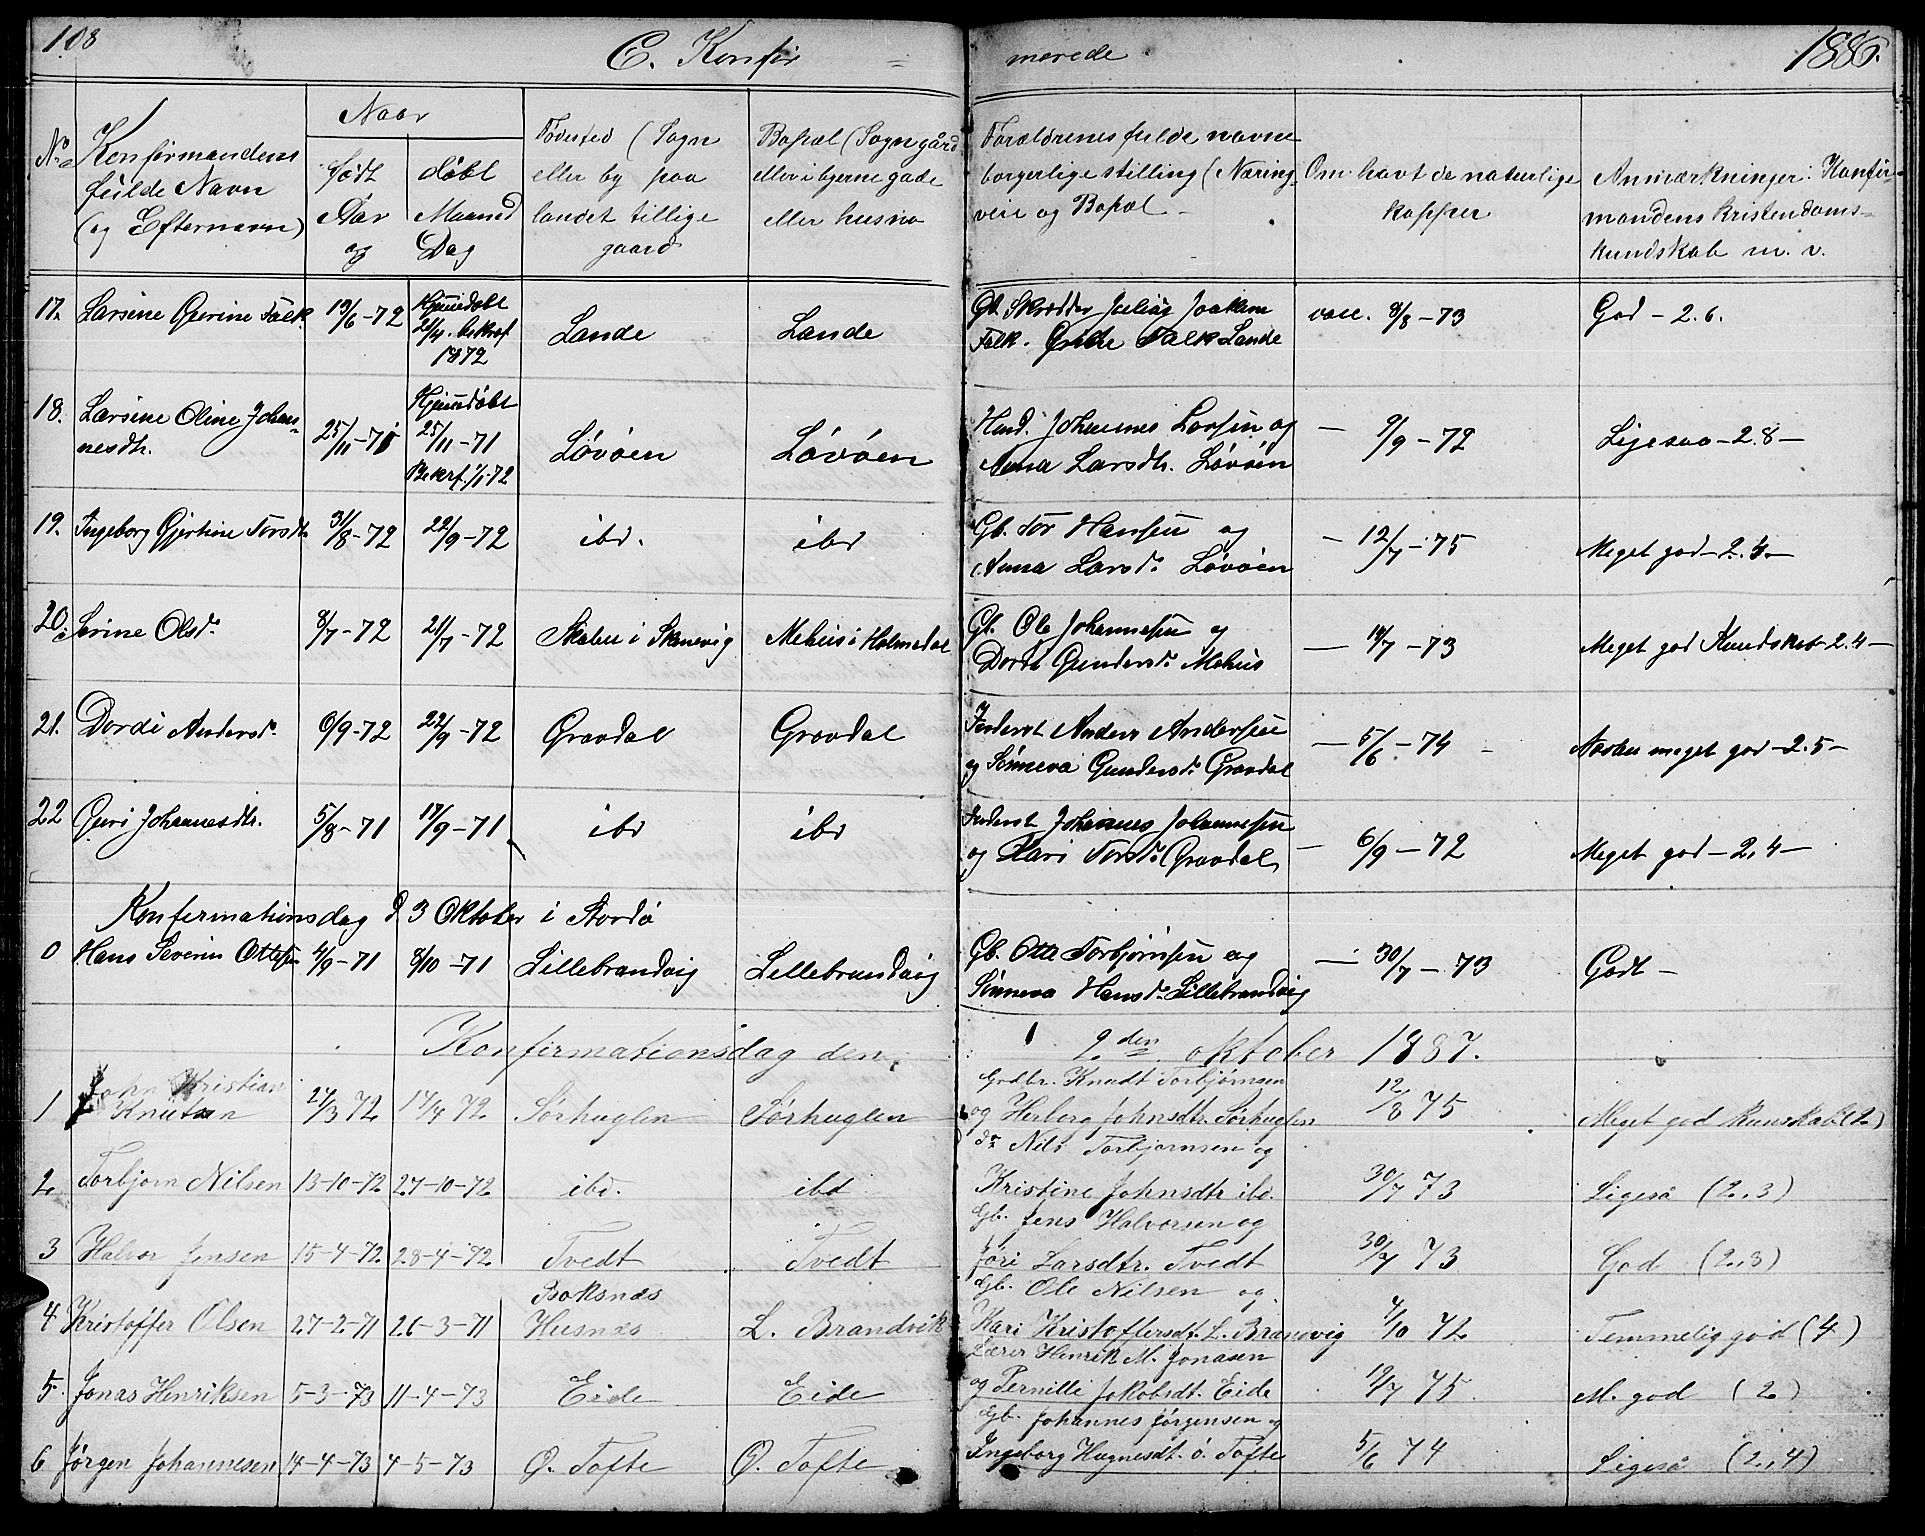 108 C. Konfir = merede 1886.
No Konfirmandens fulde Navn (og Efternavn) Naar født døbt Aar Maaned og Dag Fødested (Sogn eller by paa landet tillige gaard Bopæl (Sogn gård eller i byerne gade eller husno Forældrenes fulde navne borgerlige stilling (Nærings- veie og Bopæl - Om havt de naturlige kopper Anmærkninger: Konfir- mandens kristendoms- kundskab m. v.
17. Larsine Gurine Falk 19/6-72 Hjemdøbt bekræf 1872 Lande Lande Gb. Skrædder Julius Joakim Falk. Falk Lande vacc. 8/8-73 God - 2.6.
18. Larsine Oline Johan- nesdtr. 25/11-71 Hjemdøbt 25/11-71 Bekrf. 1/1.72 Løvøen Løvøen Husd. Johannes Larsen og Anna Larsdtr. Løvøen — 9/9-72 Ligesaa - 2.8 -
19. Ingeborg Gjertine Torsdt. 31/8-72 22/9-72 ibd. ibd Gb. Tor Hansen og Anna Larsdr. Løvøen - 12/7-75 Meget god - 2.4 -
20. Serine Olsdr. 8/7-72 21/7-72 i Skonevig Mehus i Holmedal Gb. Ole Johannesen og Dordi Gundersdr. Mehus — 14/7-73 Meget god Kundskab - 2.4 -
21. Dordi Andersdr. 6/9-72 22/9-72 Gravdal Gravdal Inderst Anders Andersen og Sönneva Gundersdr. Gravdal — 5/6-74 - Næsten meget god - 2.5 -
22 Guri Johannesdtr. 5/8-71 17/9-71 ibd ibd Inderst Johannes Johannesen og Kari Torsdr. Gravdal — 6/9-72 Meget god - 2.4 -
Konfirmationsdag d 3 Oktober i Stordö
0 Hans Severin Ottesen 4/9-71 8/10-71 Lillebrandvig Lillebrandvig Gb. Otto Torbjörnsen og Sönneva Hansdr. Lillebrandvig — 30/7-73 Godt -
Konfirmationsdag den 2den oktober 1887.
1 John Kristian Knutsen 27/3 72 14/4 72 Sørhuglen Sørhuglen Grdbr. Knudt Torbjørnsen og Herborg Johnsdtr. Sørhuglen 12/8 75 Meget god kunskab (2)
2 Torbjørn Nilsen 13-10-72 27-10-72 ibd. ibd do Nils Torbjørnsen og Kristine Johnsdtr ibd. 30/7 73 Ligeså (2,3)
3 Halvor Jensen 15-4-72 28-4-72 Tvedt Tvedt Gb. Jens Halvorsen og Jøri Larsdtr. Tvedt 30/7 73 God (2,3)
4 Kristoffer Olsen 27-2-71 26-3-71 Boksnæs Husnæs L. Brandvik Gb. Ole Nilsen og Kari Kristoffersdt. L. Brandvig 4/10 72 Temmelig god (4)
5. Jonas Henriksen 5-3-73 11-4-73 Eide Eide Lærer Henrik M. Jonasen og Pernille Jakobsdt. Eide 12/7 75 M. god (2)
6 Jørgen Johannesen 14-4-73 4-5-73 Ø. Tofte Ø. Tofte Gb. Johannes Jørgensen og Ingeborg Hagnesdt. ö. Tofte 5/6 74 Ligeså (2,4)